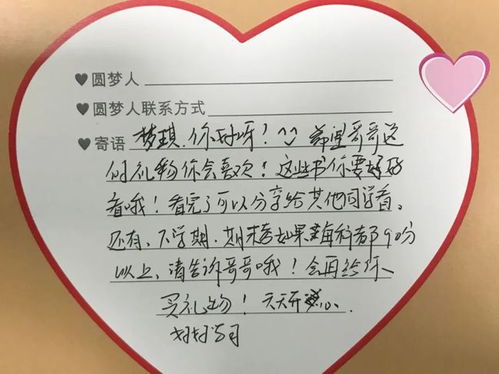 ♥圆梦人
♥圆梦人联系方式
♥寄语 梦琪,你好呀!希望哥哥送
你礼物你会喜欢!这些书你要好好
看哦!看完了可以分享给其他同学看、
还有、下学期、期末考如果每科都90分
以上、请告诉哥哥哦!会再给你
买礼物!天天开心、
好好学习